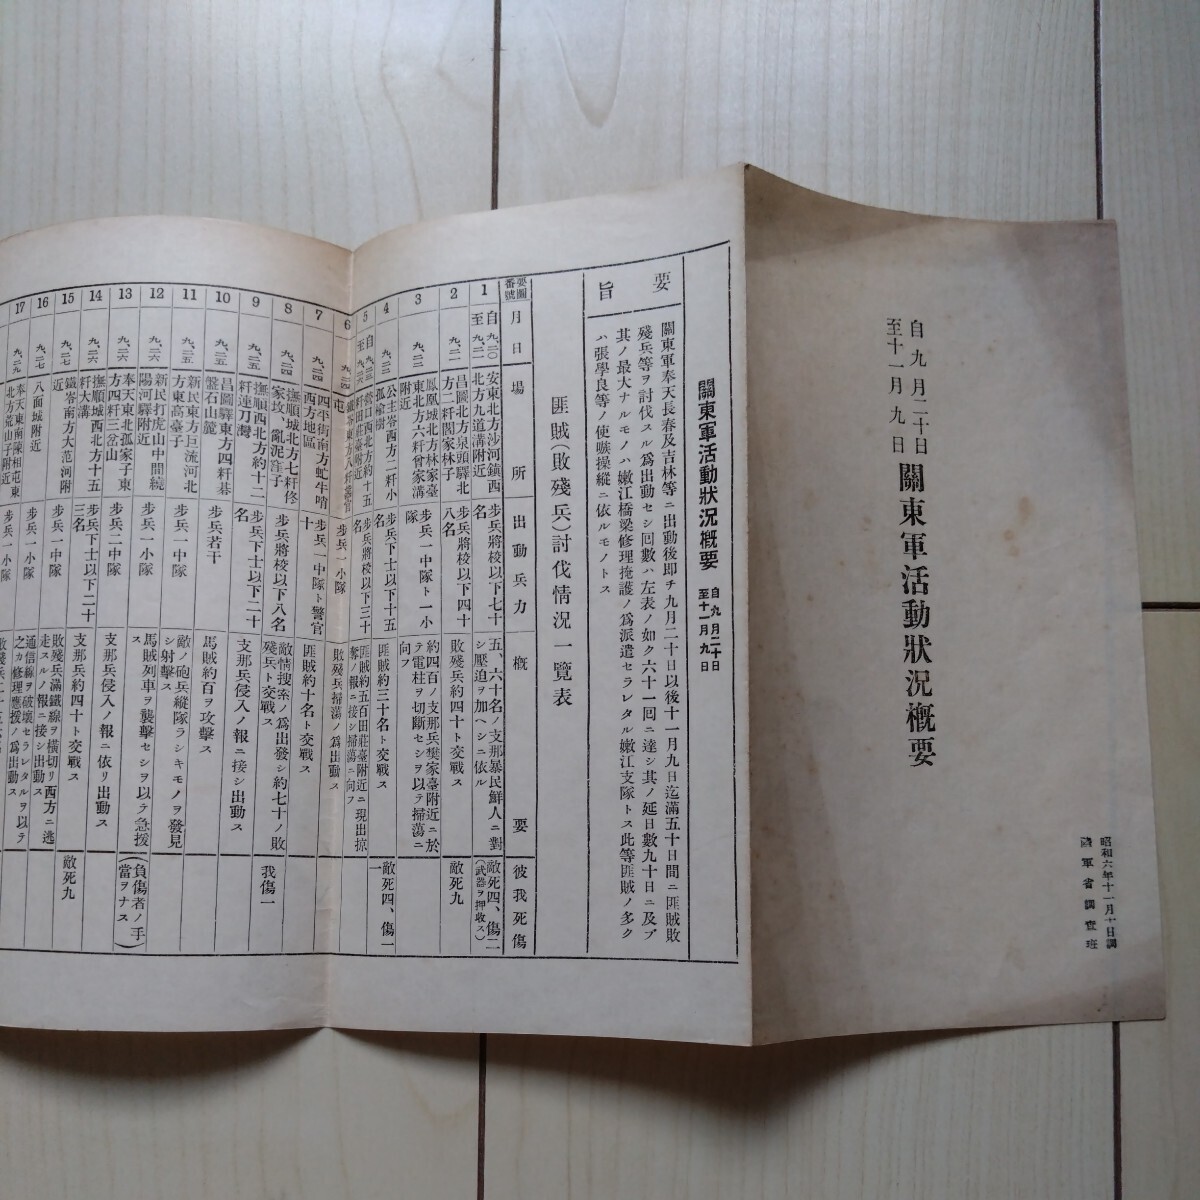 自九月二十日
至十一月九日
關東軍活動狀況槪要
昭和六年十一月十日調
陸軍省調査班
關東軍活動狀況槪要
自九月二十日
至十一月九日
要旨
關東軍奉天長春及吉林等ニ出動後卽チ九月二十日以後十一月九日迄滿五十日間ニ匪賊敗
殘兵等ヲ討伐スル爲出動セシ回數ハ左表ノ如ク六十一回ニ達シ其ノ延日數九十日ニ及ブ
其ノ最大ナルモノハ嫩江橋梁修理掩護ノ爲派遣セラレタル嫩江支隊トス此等匪賊ノ多ク
ハ張學良等ノ使嗾操縱ニ依ルモノトス
匪賊(敗殘兵)討伐情況一覽表
要圖番號
月日
場所
出動兵力
槪要
彼我死傷
1
自九、二〇
至九、二一
安東北方沙河鎭西
北方九道溝附近
步兵將校以下七十
名
五、六十名ノ支那暴民鮮人ニ對
シ壓迫ヲ加ヘシニ依ル
敵死四、傷二
(武器ヲ押收ス)
2
九、二一
昌圖北方泉頭驛北
方二粁閻家林子
步兵將校以下四十
八名
敗殘兵約四十ト交戰ス
敵死九
3
九、二二
鳳凰城北方林家臺
東北方六粁曾家溝
附近
步兵一中隊ト一小
隊
約四百ノ支那兵樊家臺附近ニ於
テ電柱ヲ切斷セシヲ以テ掃蕩ニ
向フ
4
九、二二
公主嶺西方二粁小
孤楡樹
步兵下士以下十五
名
匪賊約三十名ト交戰ス
敵死四、傷一
一
5
自九、二三
至九、二六
營口西北方約十五
粁田莊臺附近
步兵將校以下三十
名
匪賊約五百田莊臺附近ニ現出掠
奪ノ報ニ接シ掃蕩ニ向フ
6
九、二四
屯
步兵一小隊
敗殘兵掃蕩ノ爲出動ス
7
九、二四
四平街南方虻牛哨
西方地區
步兵一中隊ト警官
十
匪賊約十名ト交戰ス
8
九、二四
撫順城北方七粁佟
家攻、亂泥窪子
步兵將校以下八名
敵情搜索ノ爲出發シ約七十ノ敗
殘兵ト交戰ス
我傷一
9
九、二五
撫順西北方約十二
粁連刀灣
步兵下士以下二十
名
支那兵侵入ノ報ニ接シ出動ス
10
九、二五
昌圖驛東方四粁碁
盤石山麓
步兵若干
馬賊約百ヲ攻擊ス
11
九、二五
新民東方巨流河北
方東高臺子
步兵一中隊
敵ノ砲兵縱隊ラシキモノヲ發見
シ射擊ス
12
九、二六
新民打虎山中間繞
陽河驛附近
步兵一小隊
馬賊列車ヲ襲擊セシヲ以テ急援
ス
(負傷者ノ手
當ヲナス)
13
九、二六
奉天東北孤家子東
方四粁三岔山
步兵二中隊
14
九、二六
撫順城西北方十五
粁大溝
步兵下士以下二十
三名
支那兵侵入ノ報ニ依リ出動ス
15
九、二七
鐵嶺南方大范河附
近
步兵一中隊
支那兵約四十ト交戰ス
敵死九
16
九、二七
八面城附近
步兵一小隊
敗殘兵滿鐵線ヲ橫切リ西方ニ逃
走スルノ報ニ接シ出動ス
17
九、二九
奉天東南陳相屯東
北方荒山子附近
步兵一小隊
通信線ヲ破壞セラレタルヲ以テ
之カ修理應援ノ爲出動ス